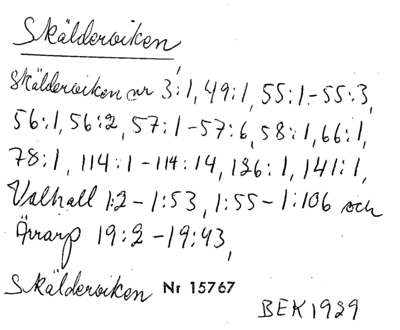 Skälderviken
Skälderviken nr 3:1, 49:1, 55:1-55:3,
56:1, 56:2, 57:1-57:6, 58:1, 66:1,
78:1, 114:1-114:14, 136:1, 141:1,
Valhall 1:2-1:53, 1:55-1:106 och
Ärrarp 19:2-19:43,
Skälderviken Nr 15767
BEK 1929